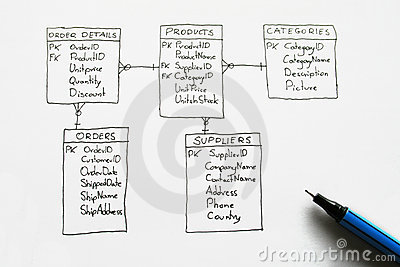 ORDER DETAILS
PK OrderID
FK ProductID
Unitprice
Quantity
Discount
PRODUCTS
PK ProductID
ProductName
FK SupplierID
FK CategoryID
UnitPrice
UnitsInStock
CATEGORIES
PK CategoryID
CategoryName
Description
Picture
ORDERS
PK OrderID
CustomerID
OrderDate
ShippedDate
ShipName
ShipAddress
SUPPLIERS
PK SupplierID
CompanyName
ContactName
Address
Phone
Country